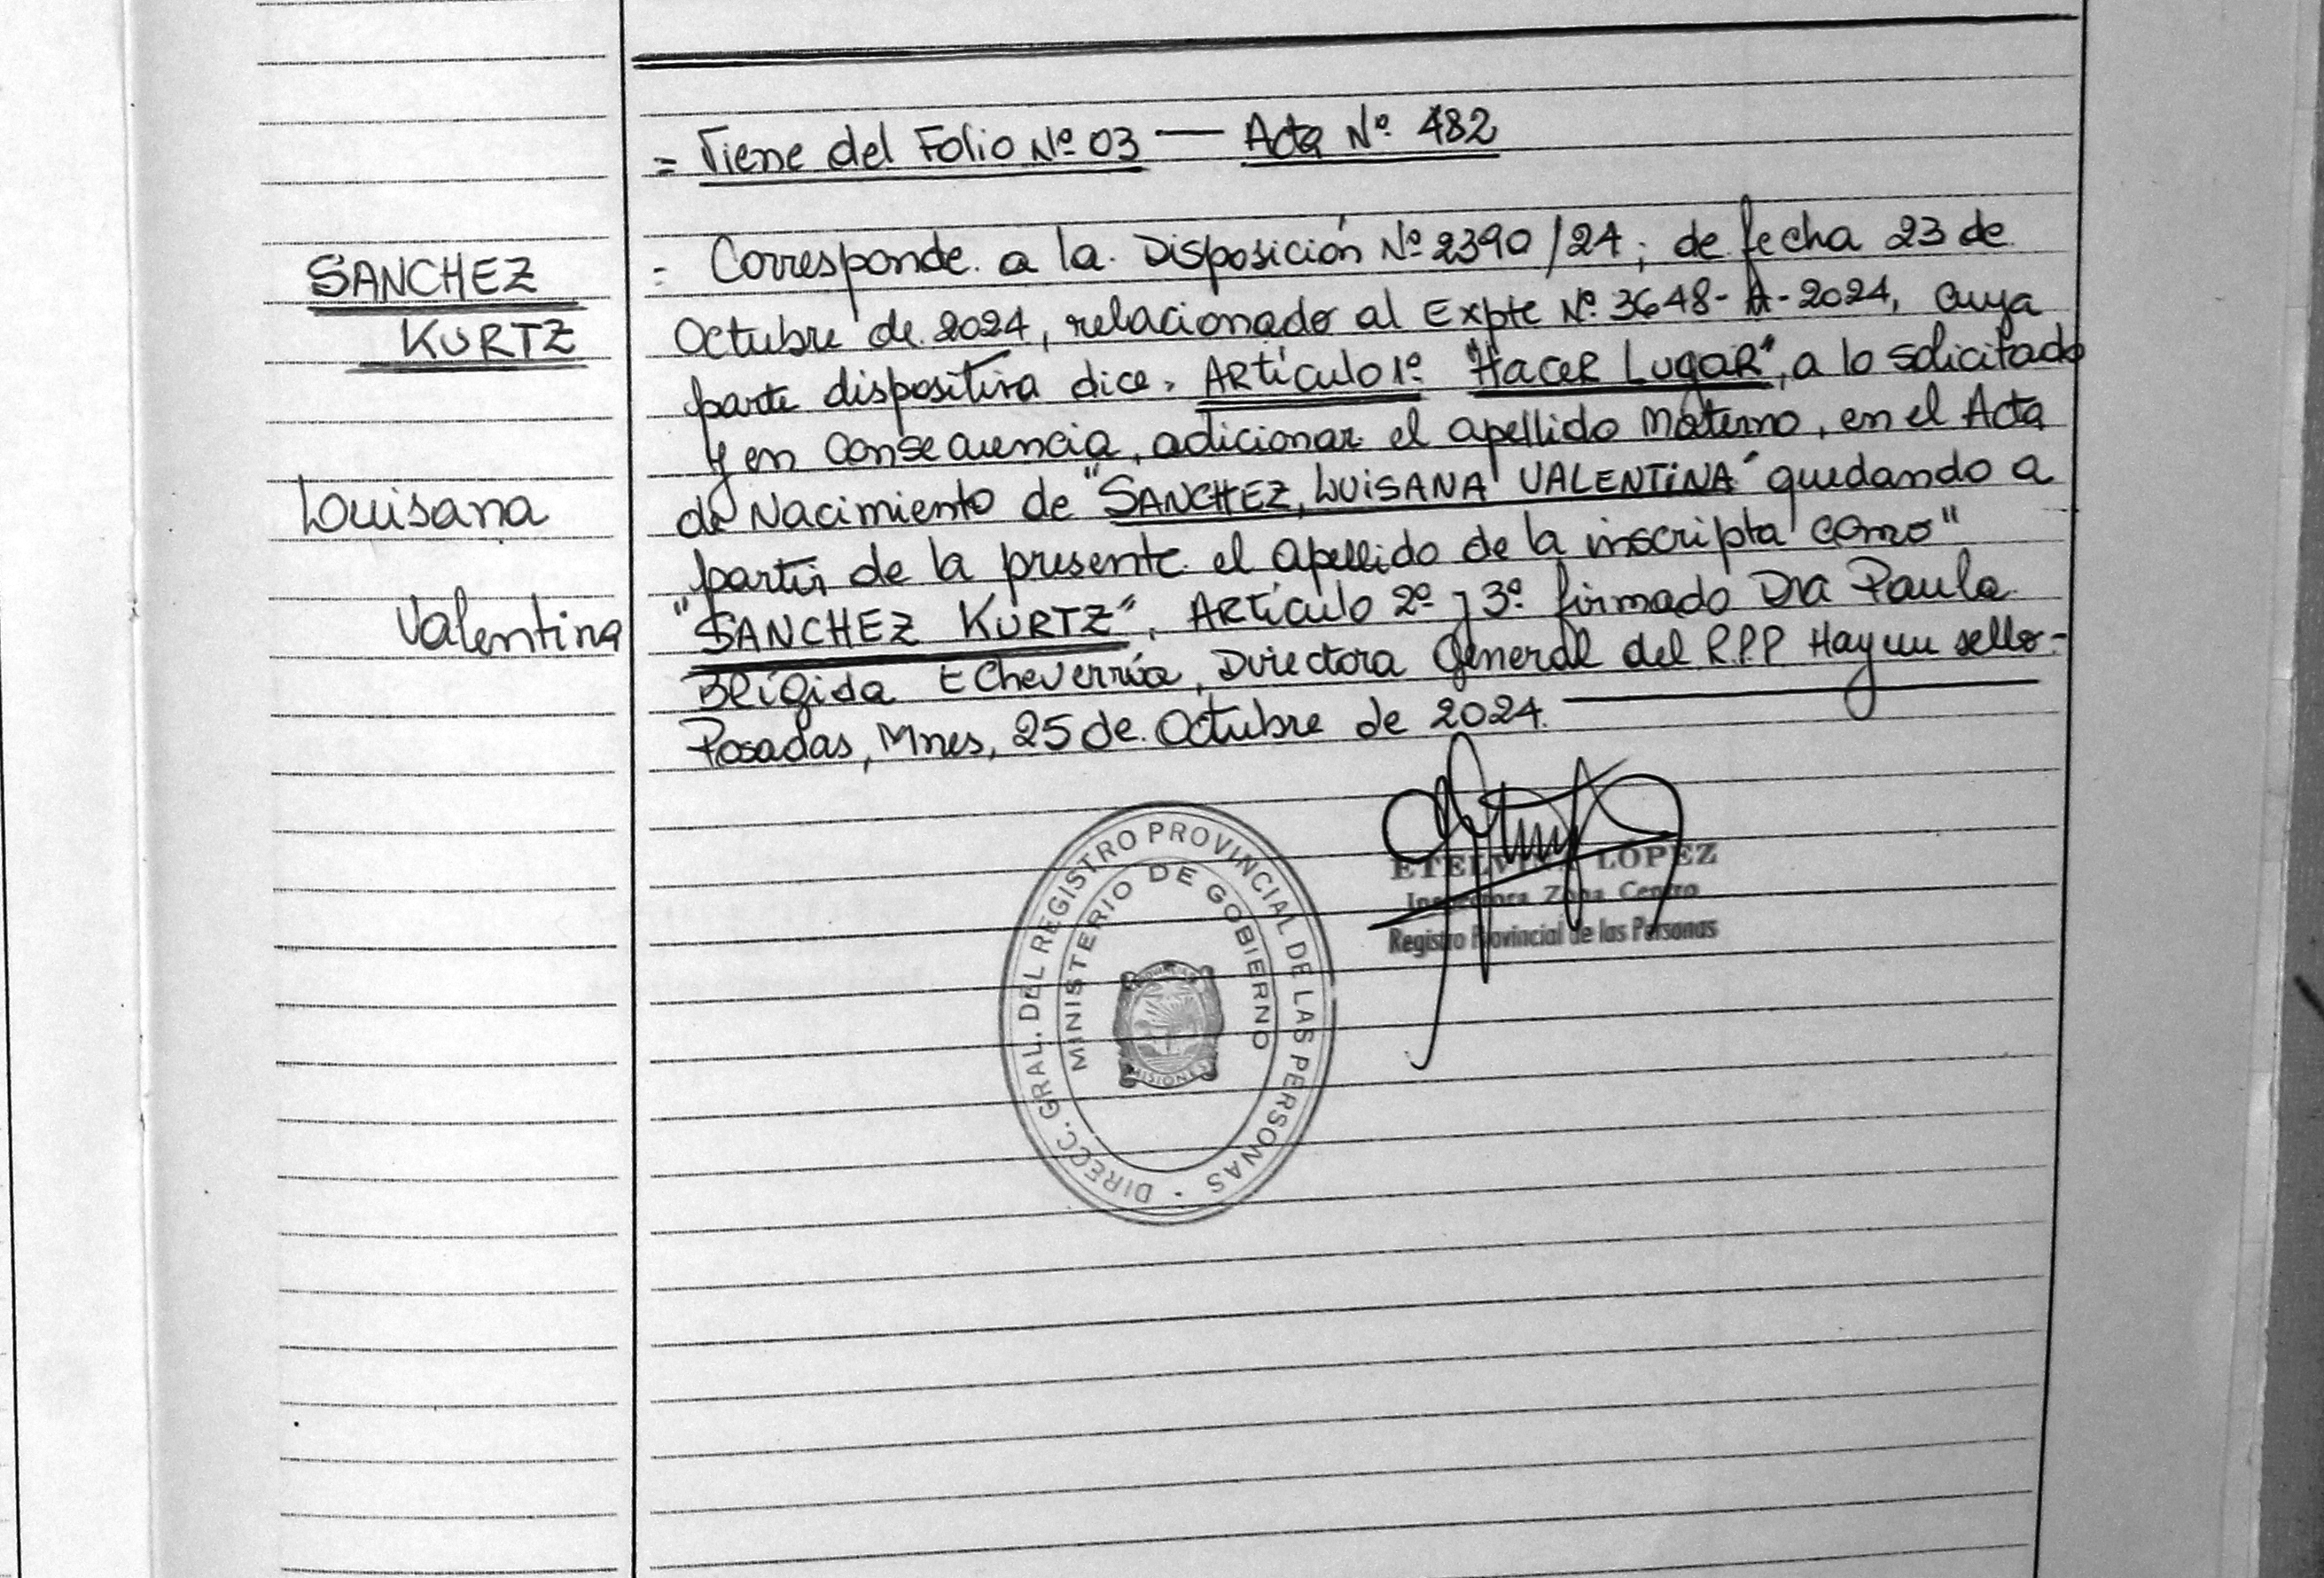 = Viene del Folio Nº 03 — Acta Nº 482
SANCHEZ
KURTZ
Louisana
Valentina
= Corresponde a la Disposición Nº 2390/24, de fecha 23 de
Octubre de 2024, relacionado al Expte Nº 3648-A-2024, cuya
parte dispositiva dice. Artículo 1º "Hacer Lugar", a lo solicitado
y en consecuencia, adicionar el apellido Materno, en el Acta
de Nacimiento de "SANCHEZ, LUISANA VALENTINA" quedando a
partir de la presente el apellido de la inscripta como"
"SANCHEZ KURTZ", Artículo 2º y 3º firmado Dra Paula
Brígida Echeverría, Directora General del R.P.P Hay un sello-
Posadas, Mnes, 25 de Octubre de 2024.
ETELVINA LOPEZ
Inspectora Zona Centro
Registro Provincial de las Personas
DIRECC. GRAL. DEL REGISTRO PROVINCIAL DE LAS PERSONAS
MINISTERIO DE GOBIERNO
MISIONES